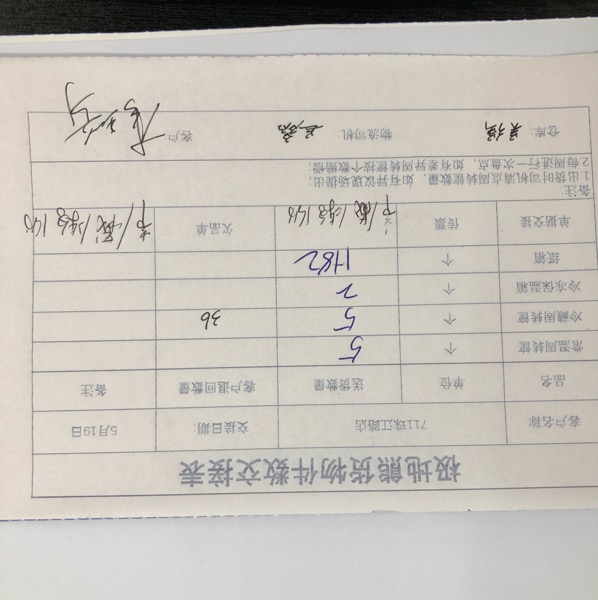 极地熊货物件数交接表
客户名称: 711珠江路店 交接日期: 5月19日
品名 单位 送货数量 客户退回数量 备注
常温周转筐 个 5
冷藏周转筐 个 5 36
冷冻保温箱 个 2
纸箱 个 1482
单据交接 传票 欠品单
备注:
1.出货时司机清点周转筐数量，如有异议现场提出;
2.每周进行一次盘点，如有差异周转筐按个数赔偿;
仓库: 物流司机: 客户: